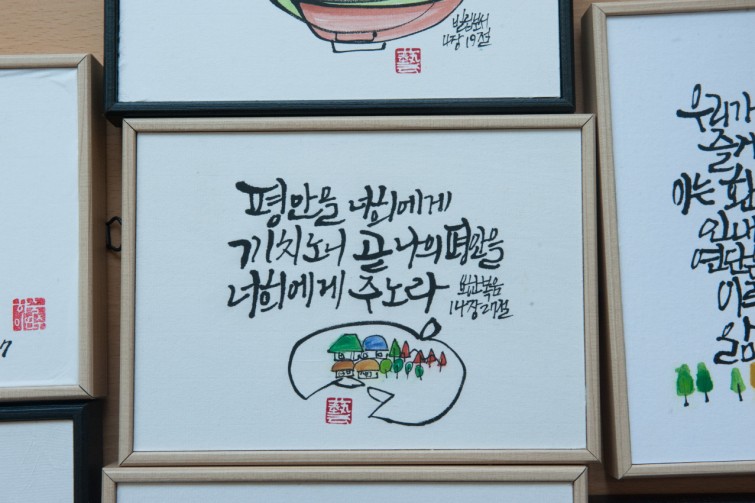 빌립보서
4장 19절
藝
평안을 너희에게
끼치노니 곧 나의 평안을
너희에게 주노라
요한복음
14장 27절
藝
우리가
즐거
이는 환
인내
연단
앎
7